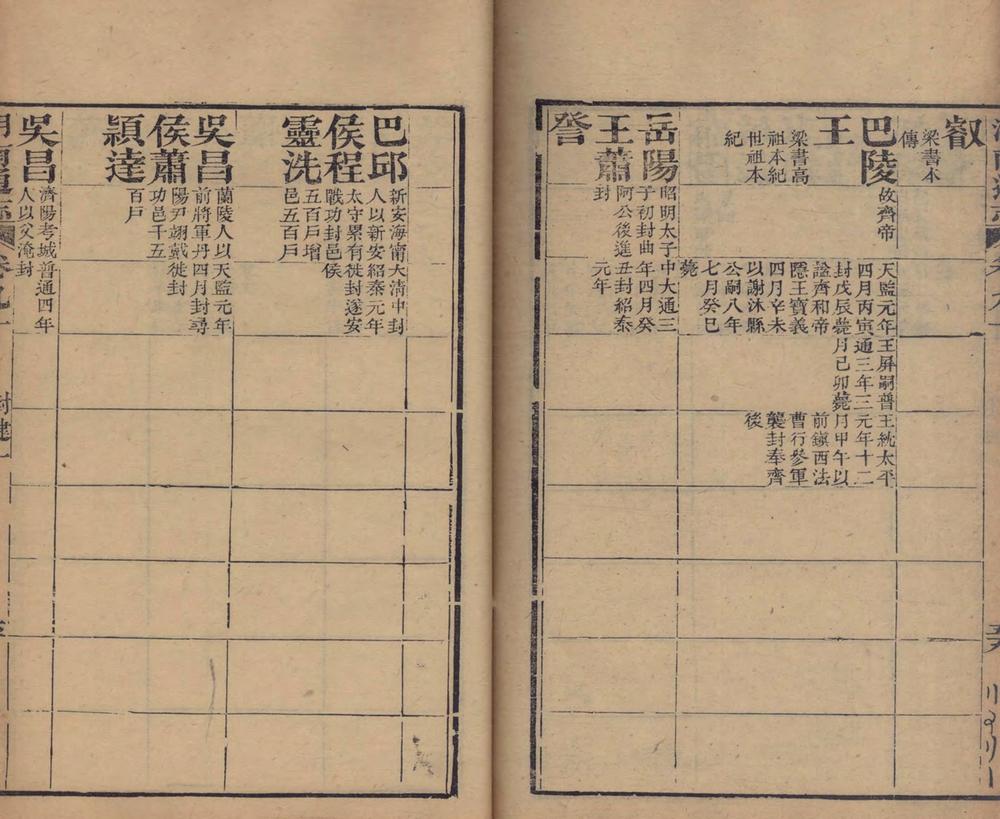 叡
梁書本
傳
巴陵
王
梁書高
祖本紀
世祖本
紀
故齊帝
天監元年
四月丙寅
封戊辰薨
諡齊和帝
隱王寶義
四月辛未
以謝沐縣
公嗣八年
七月癸巳
薨
王屏嗣普
通三年三
月己卯薨
王太平
元年十二
月甲午以
前鎭西法
曹行參軍
襲封奉齊
後
岳陽
王蕭
詧
昭明太子
子初封曲
阿公後進
封
中大通三
年四月癸
丑封紹泰
元年
巴邱
侯程
靈洗
新安海甯
人以新安
太守累有
戰功封邑
五百戸增
邑五百戸
大清中封
紹泰元年
徙封遂安
侯
吳昌
侯蕭
頴達
蘭陵人以
前將軍丹
陽尹翊戴
功邑千五
百戸
天監元年
四月封尋
徙封
吳昌
濟陽考城
人以父淹
普通四年
封